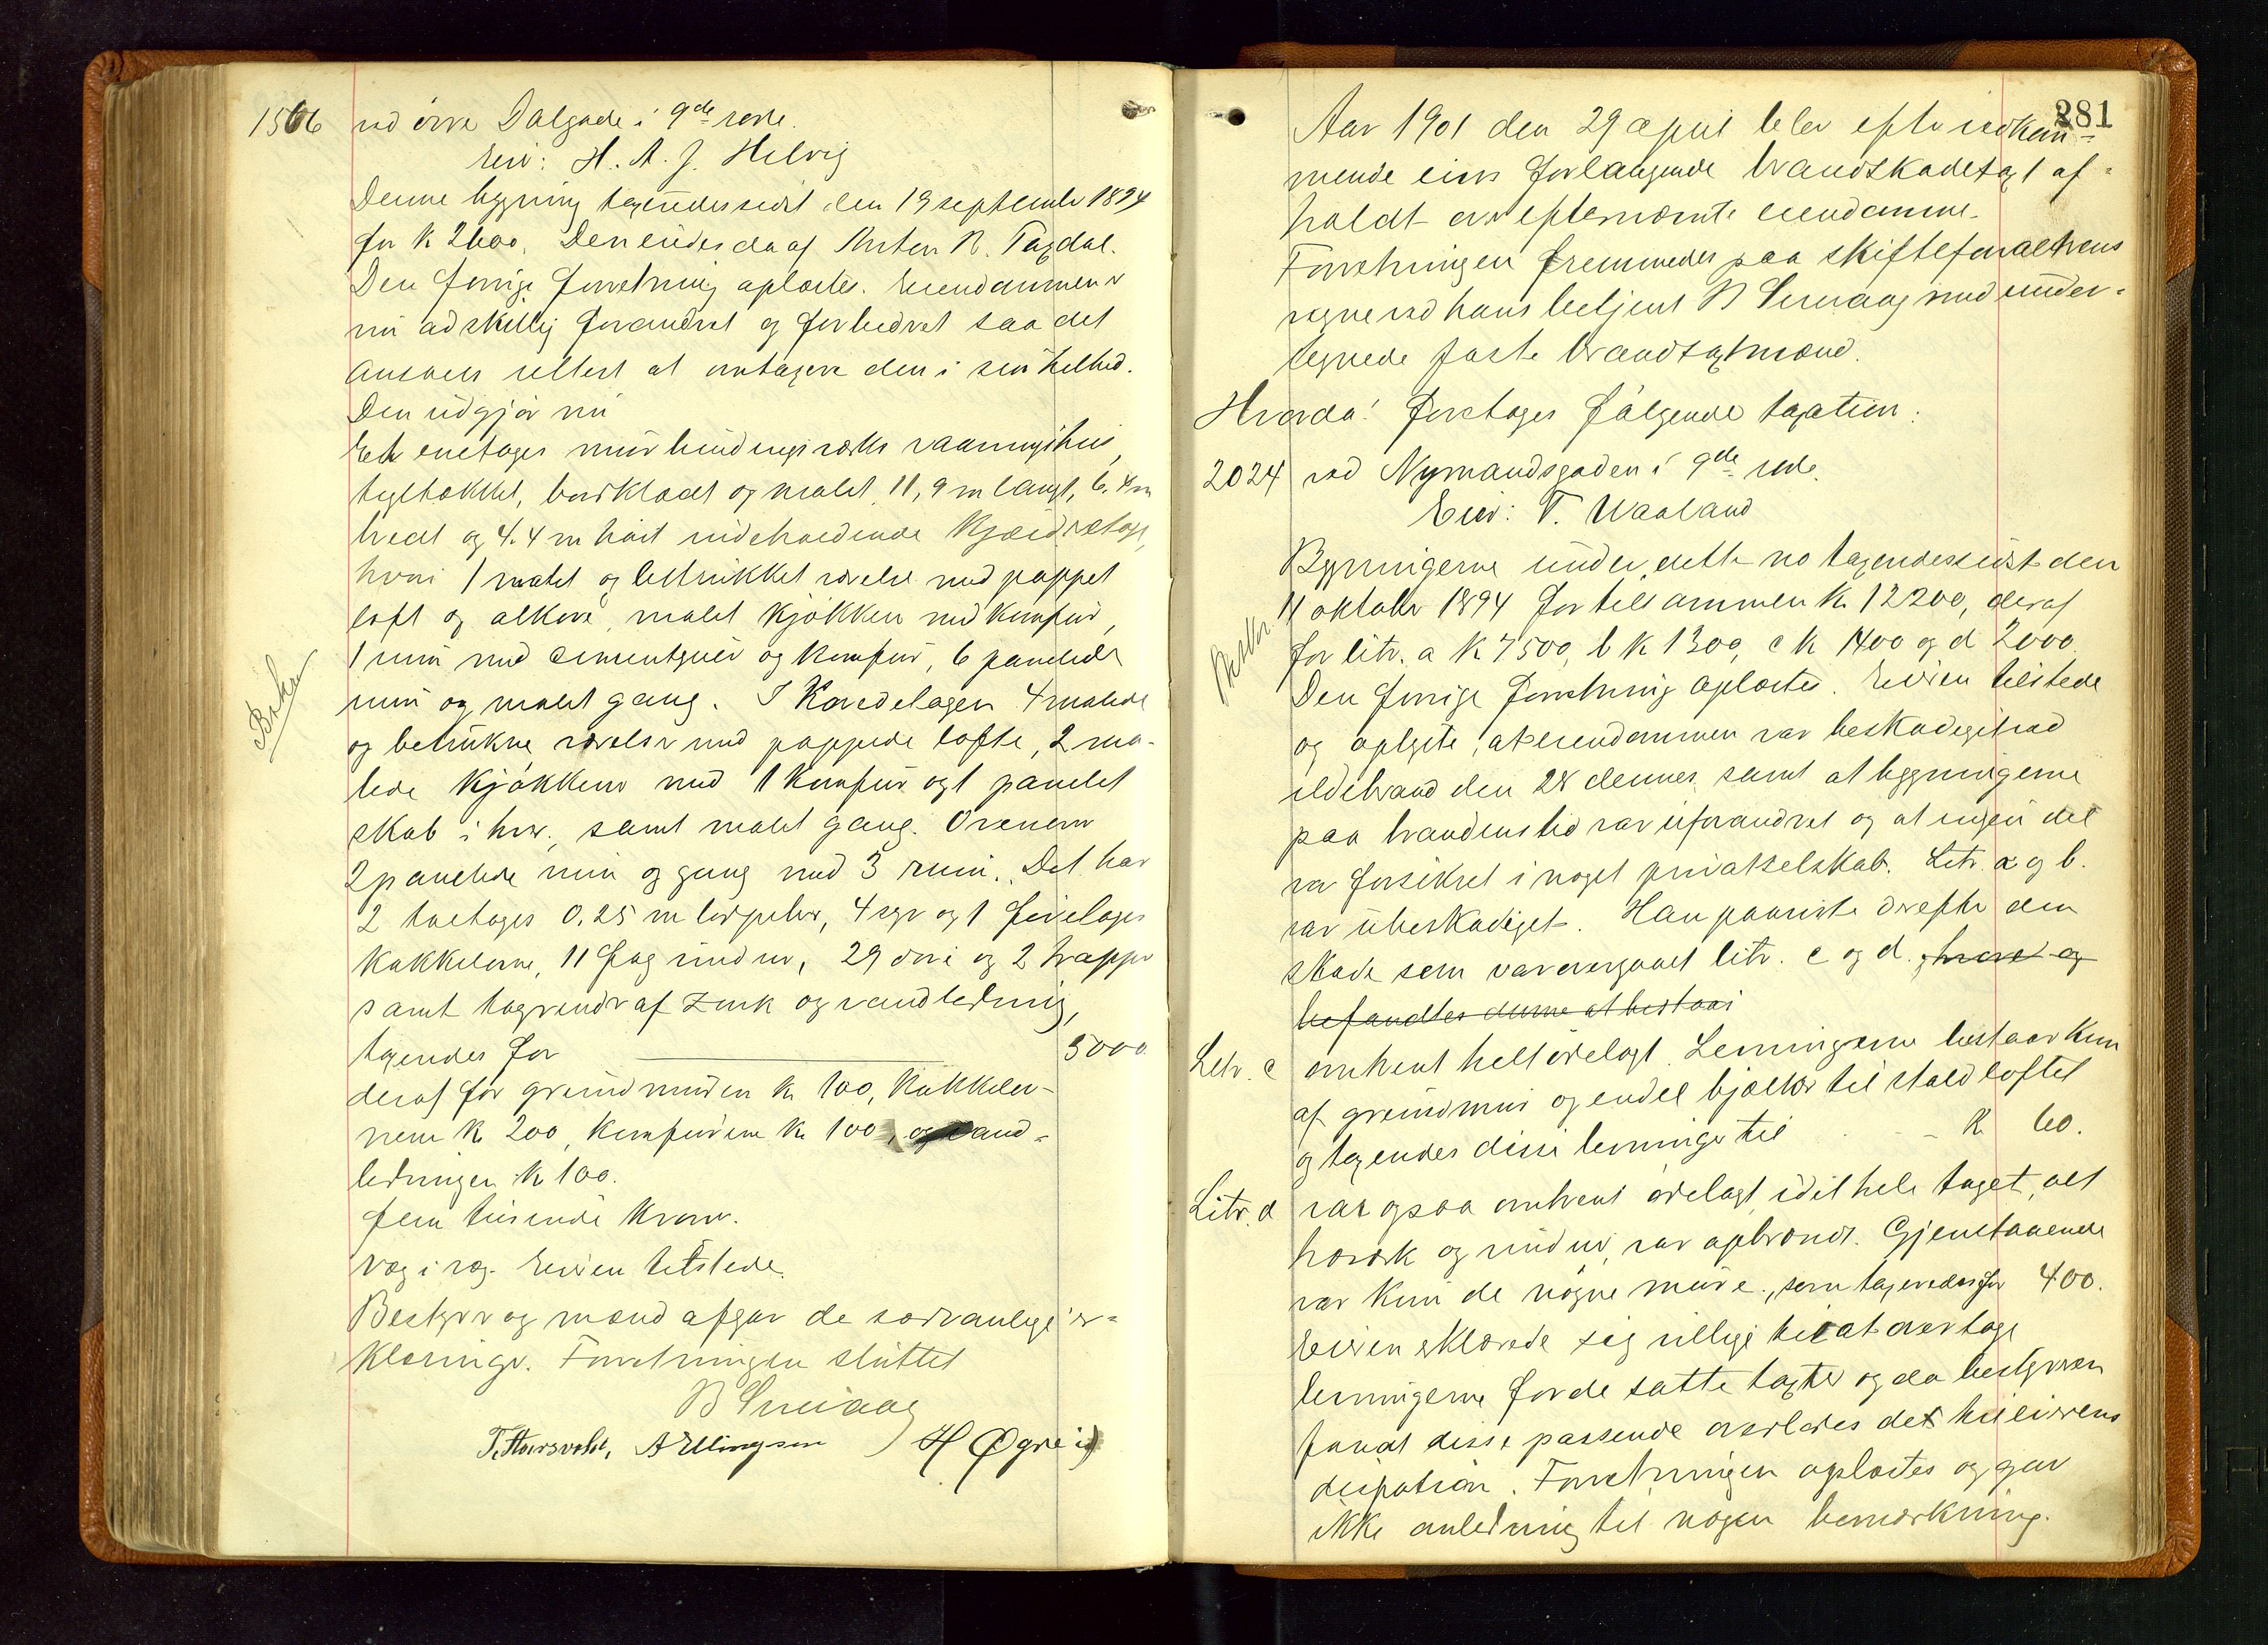 1566 ved øvre Dalgade i 9de rode.
Eier: H. A. J. Helvig
Denne bygning taxeredes sidst den 19 september 1894
for k 2600. Den eiedes da af Anten R. Taxdal.
Den forrige forretning oplæstes. Eiendommen er
nu adskillig forandret og forbedret saa det
ansaaes rettest at omtaxere den i sin helhed.
Den udgjør nu
Et enetages murbindingsværks vaaningshus,
tegltækket, bordklædt og malet, 11,9 m langt, 6.4 m
bredt og 4.4 m høit indeholdende Kjælderetage,
hvori 1 malet og betrukket værelse med pappet
loft og alkove, malet kjøkken med komfur,
1 rum med cementgulv og komfur, 6 panelede
rum og malet gang. I Hovedetagen 4 malede
og betrukne værelser med pappede lofte, 2 ma-
lede kjøkkener med 1 komfur og 1 panelet
skab i hver, samt malet gang. Ovenover
2 panelede rum og gang med 3 rum. Det har
2 toetages 0.25 m brede piber, 4 og 1 fireetages
kakkelovne, 11 fag vinduer, 29 døre og 2 trapper
samt tagrender af zink og vandledning,
taxeredes for 5000
deraf for grundmuren kr 100, Kakkelov-
nene kr 200, komfurene kr 100, og vand-
ledningen kr 100.
fem tusinde kroner.
Væg i væg. Eieren tilstede.
Bestyrer og mænd afgav de sædvanlige er-
klæringer. Forretningen sluttet
B Smaaog
T. Haarsvoldt, A Ellingsen H Øgreid
281
Aar 1901 den 29 april blev efter vedkom-
mende eiers forlangende brandskadetaxt af-
holdt over efternævnte eiendomme.
Forretningen fremmedes paa skifteforvalterens
vegne ved hans betjent B Smaaog med under-
tegnede faste brandtaxtmænd.
Hvorda! foretages følgende taxation:
2024 ved Nymandsgaden i 9de rode.
Eier: T. Waaland
Bygningerne under dette no taxeredes sidst den
11 oktober 1894 for tilsammen kr. 12200, deraf
for litr. a k 7500, b k 1300, c k 1400 og d 2000.
Den forrige forretning oplæstes. Eieren tilstede
og oplyste, at eiendommen var beskadiget ved
ildebrand den 28 dennes, samt at bygningerne
paa brandens tid var uforandret og at ingen del
var forsikret i noget privatselskab. Litr. a og b.
var ubeskadiget. Han paaviste derefter den
skade som var overgaaet litr. c og d. hvoref og
befandtes denne at bestaa i
Litr. c omtrent helt ødelagt. Levningerne bestaar kun
af grundmur og endel bjælker til staldloftet
og taxeredes disse levninger til K 60.
Litr. d var ogsaa omtrent ødelagt, idet hele taget, alt
træværk og vinduer var opbrændt. Gjenstaaende
var kun de nøgne mure, som taxeredes for 400.
Eieren erklærede sig villig til at overtage
levningerne for de satte taxter og da bestyreren
fandt disse passende overlodes det til eierens
disposition. Forretningen oplæstes og gav
ikke anledning til nogen bemærkning.